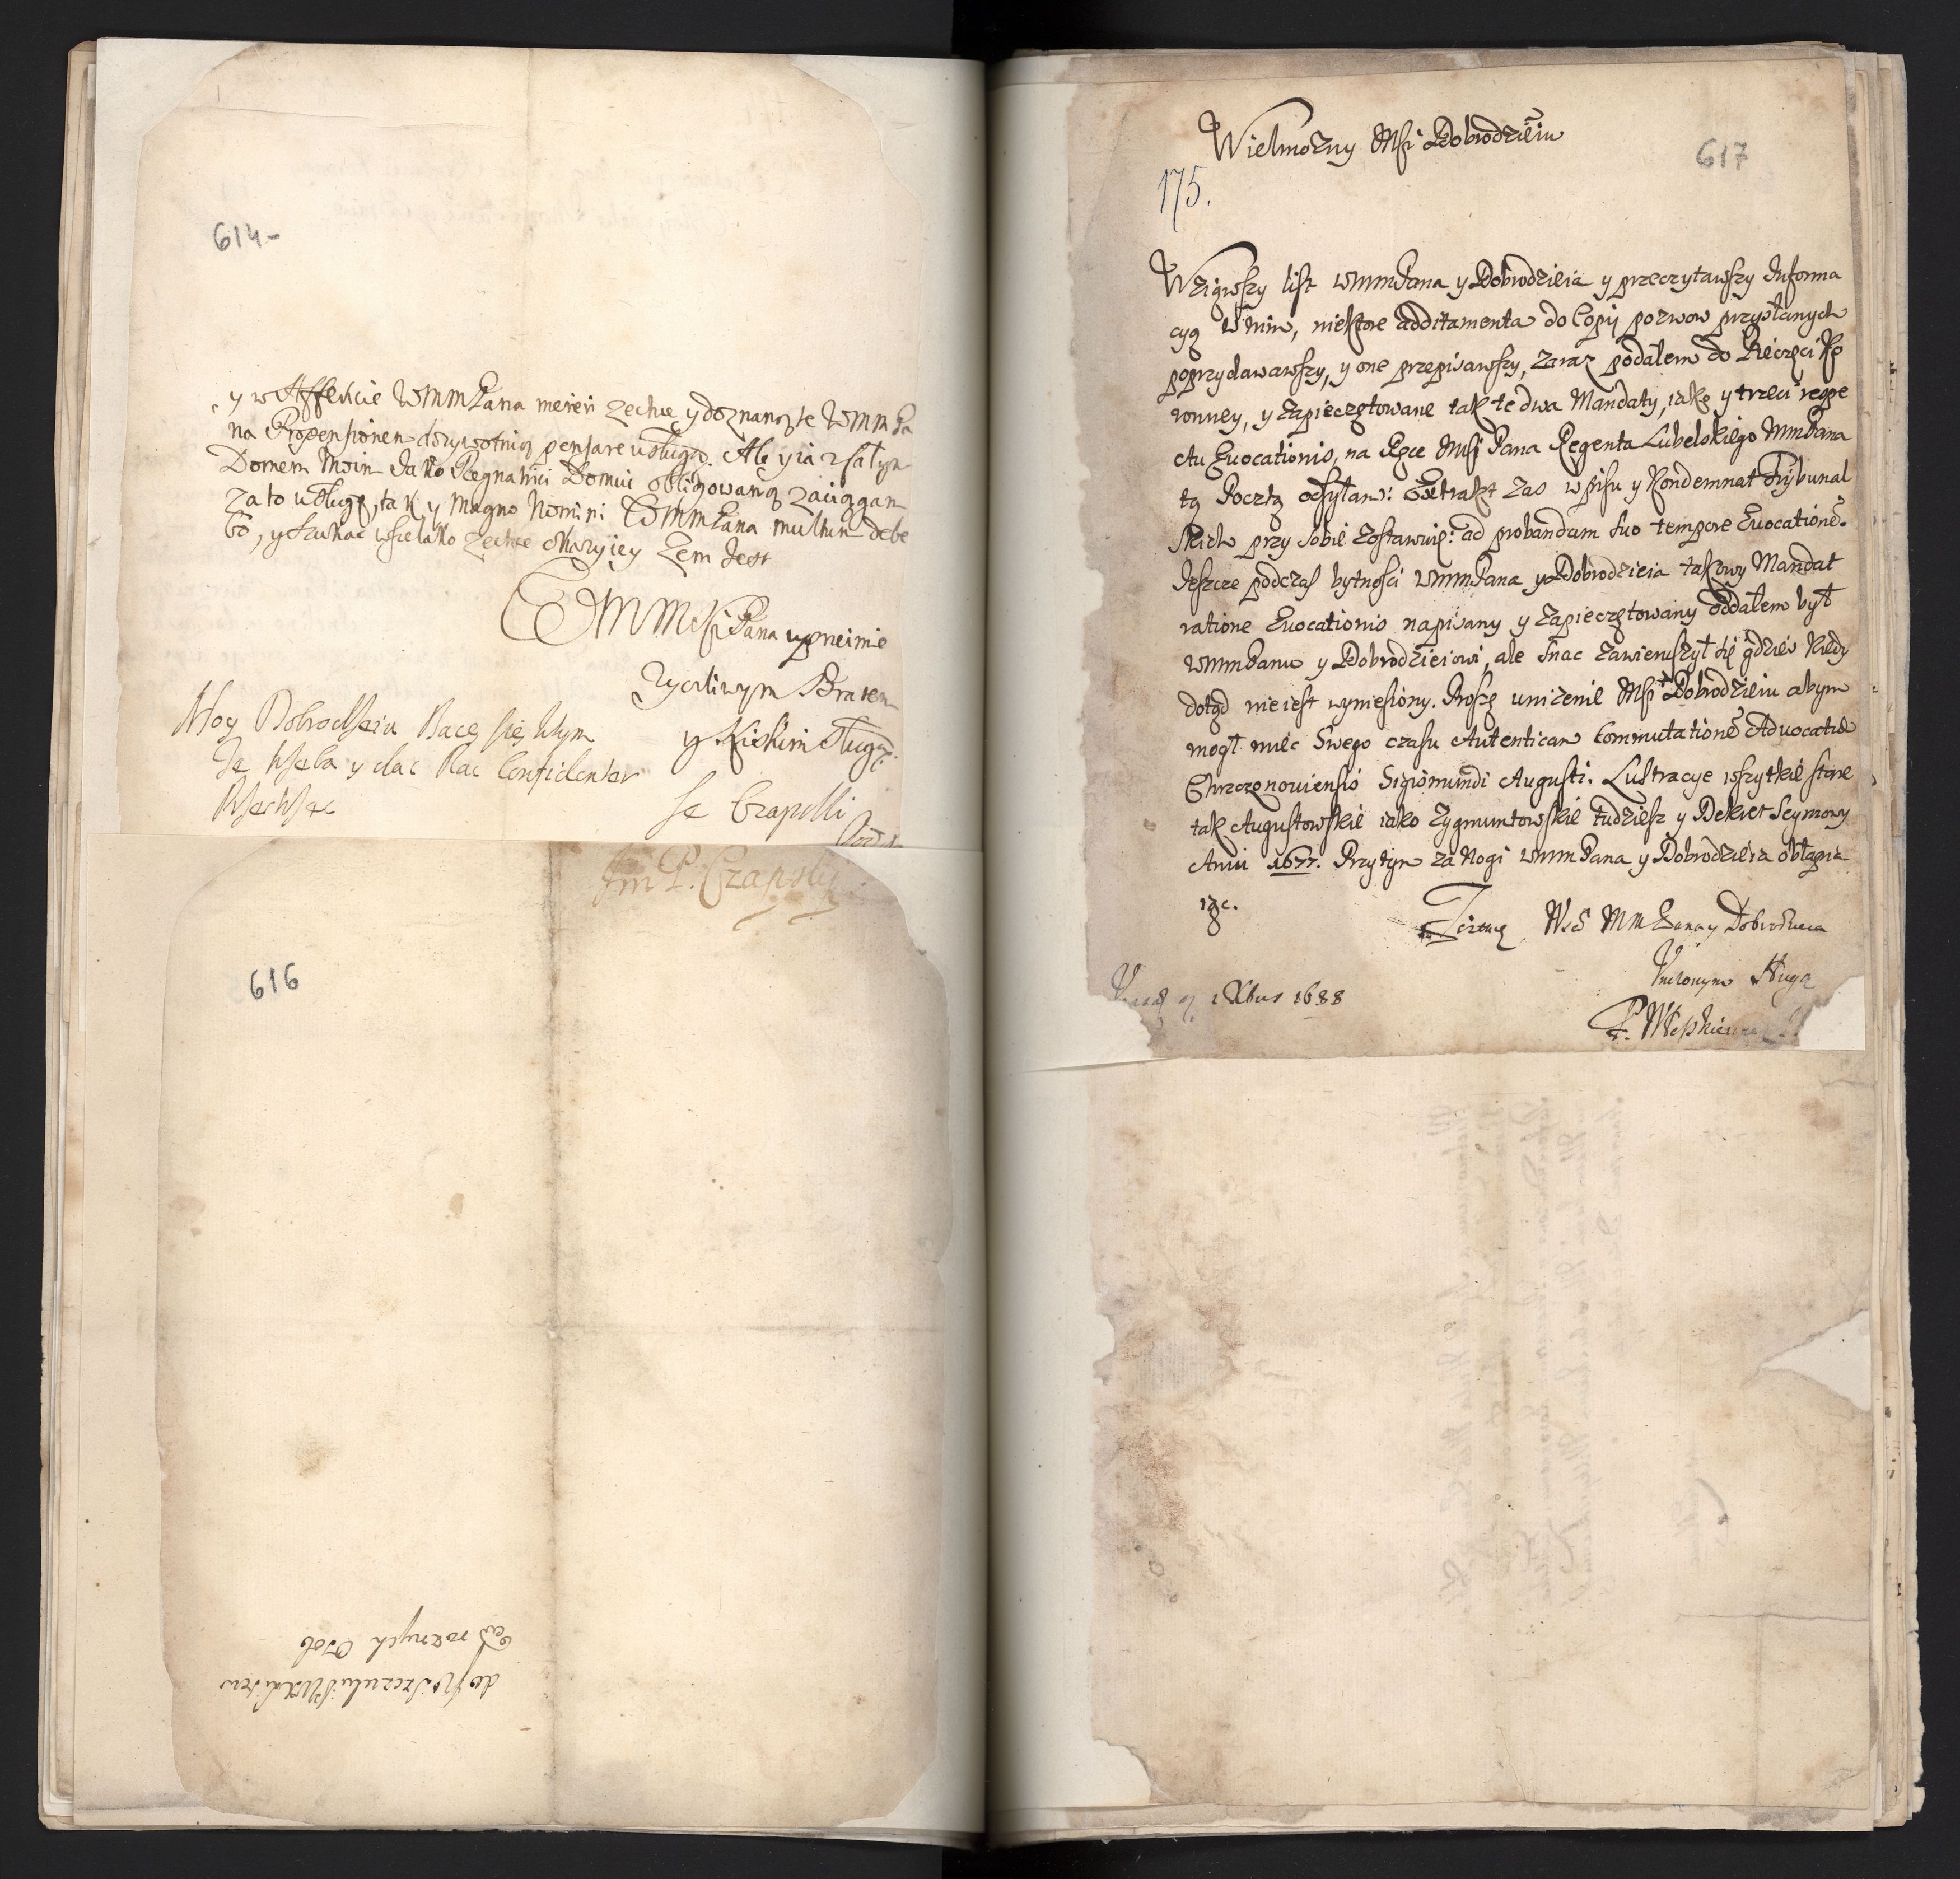 614-
y w Affekcie WMMPana mieni zechce y doznaną te WMMPa
na Propensionem dozywotnią pensare usługą. Ale y ia z całym
Domem Moim Jako Regnatrici Domui obligowaną zaciągam
za to usługę, tak y Magno Nomini WMMPana multum debe
bo, y szukać wszelako zechce okazyiey zem Jest
WMMMśći Pana uprzeimie
Zyczliwym Bratem
y Niskim Sługą
Moy Dobrodzieiu Racz się Wym
Je Czapski
Jm P. Czapsky
616
do
Od roznych Osob
617
Wielmozny Mśći Dobrodzieiu
175.
Wziąwszy list WMMPana y Dobrodzieia y przeczytawszy Informa
cyą w nim, niektore additamenta do Copij pozwow przysłanych
poprzydawawszy, y one przepisawszy, zaraz podałem do Pieczęci Ko
ronney, y zapieczętowane tak te dwa Mandaty, iako y trzeci respe
ctu Evocationis, na Ręce Mśći Pana Regenta Lubelskiego MMPana
tą Pocztą odsyłam: Extrakt zas wpisu y Kondemnat Trybunal
skich przy sobie zostawuię: ad probandam suo tempore Evocationē.
Jeszcze podczas bytnosci WMMPana y Dobrodzieia takowy Mandat
ratione Evocationis napisany y zapieczętowany oddałem był
WMMPanu y Dobrodzieiowi, ale snac zawieruszył się gdzies kiedy
dotąd nie iest wyniesiony. Proszę unizenie Mśći Dobrodzieiu abym
mogł miec swego czasu Autenticam Commutationē Advocatiæ
Chrzęznoviensis Sigismundi Augusti. Lustracye wszytkie stare
tak Augustowskie iako Zygmuntowskie tudziesz y Dekret Seymowy
Anni 1677. Przytym za Nogi WMMPana y Dobrodzieia obłapia
iąc.
WMMPana y Dobrodzieia
Unizonym Sługą
1 Xbris 1688